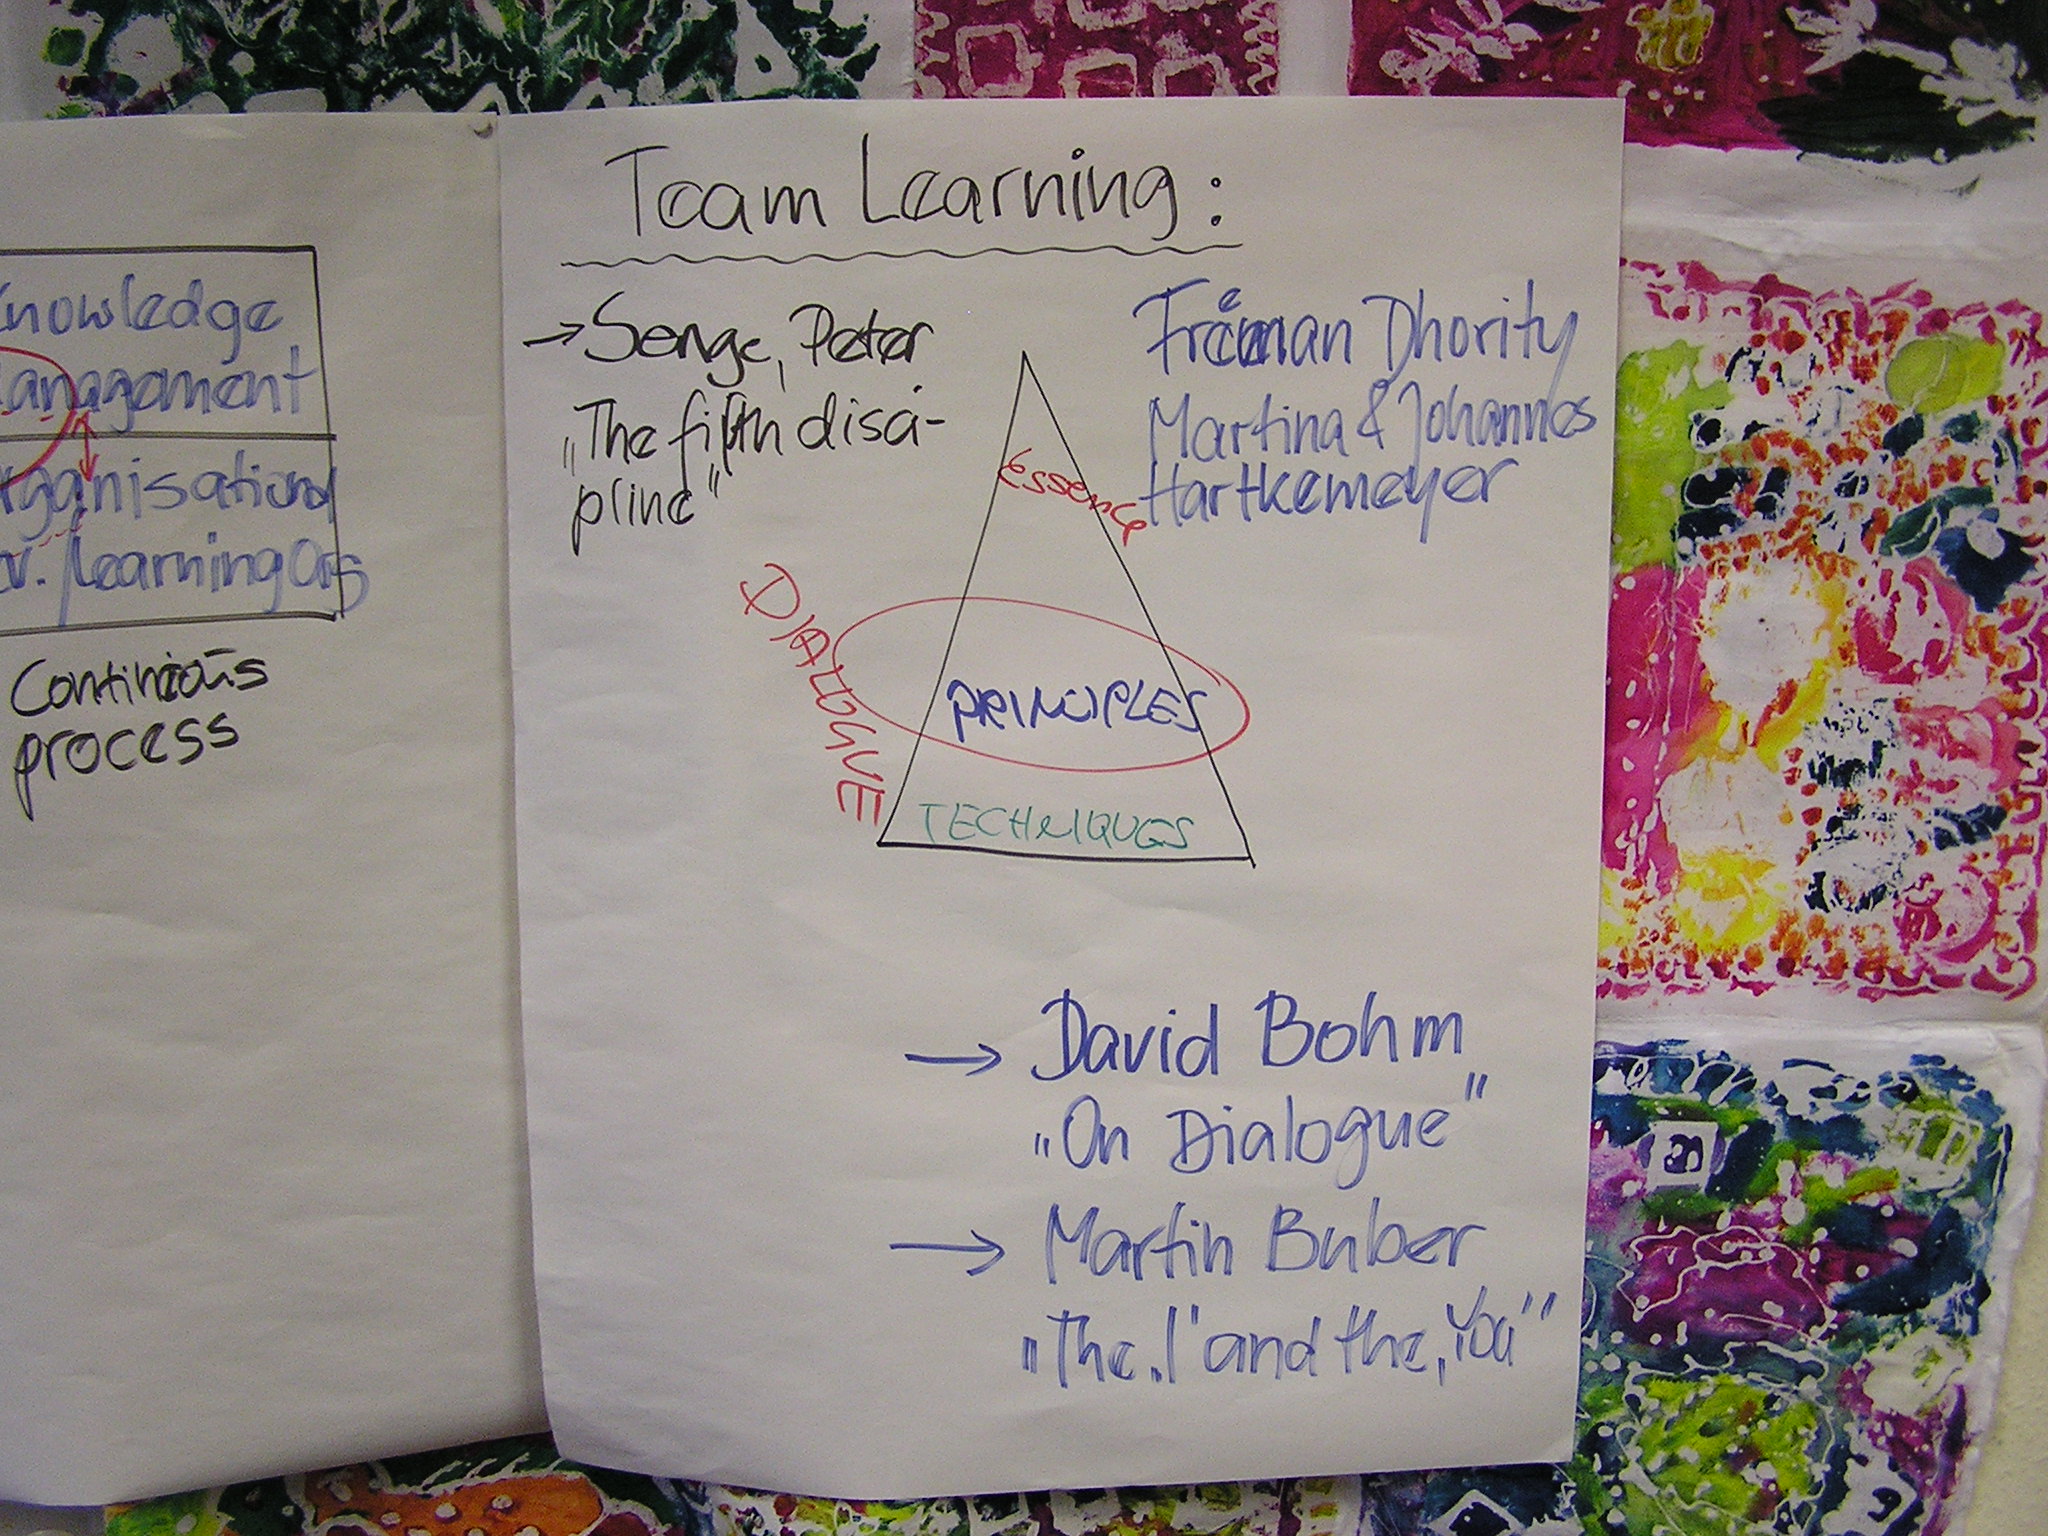 Knowledge
Management
Organisational
Learning Org
Continious
process
Team Learning:
→ Senge, Peter
„The fifth disci-
pline"
Freeman Dhority
Martina & Johannes
Hartkemeyer
essence
DIALOGUE
PRINCIPLES
TECHNIQUES
→ David Bohm
„On Dialogue"
→ Martin Buber
„The ‚I' and the ‚You'"